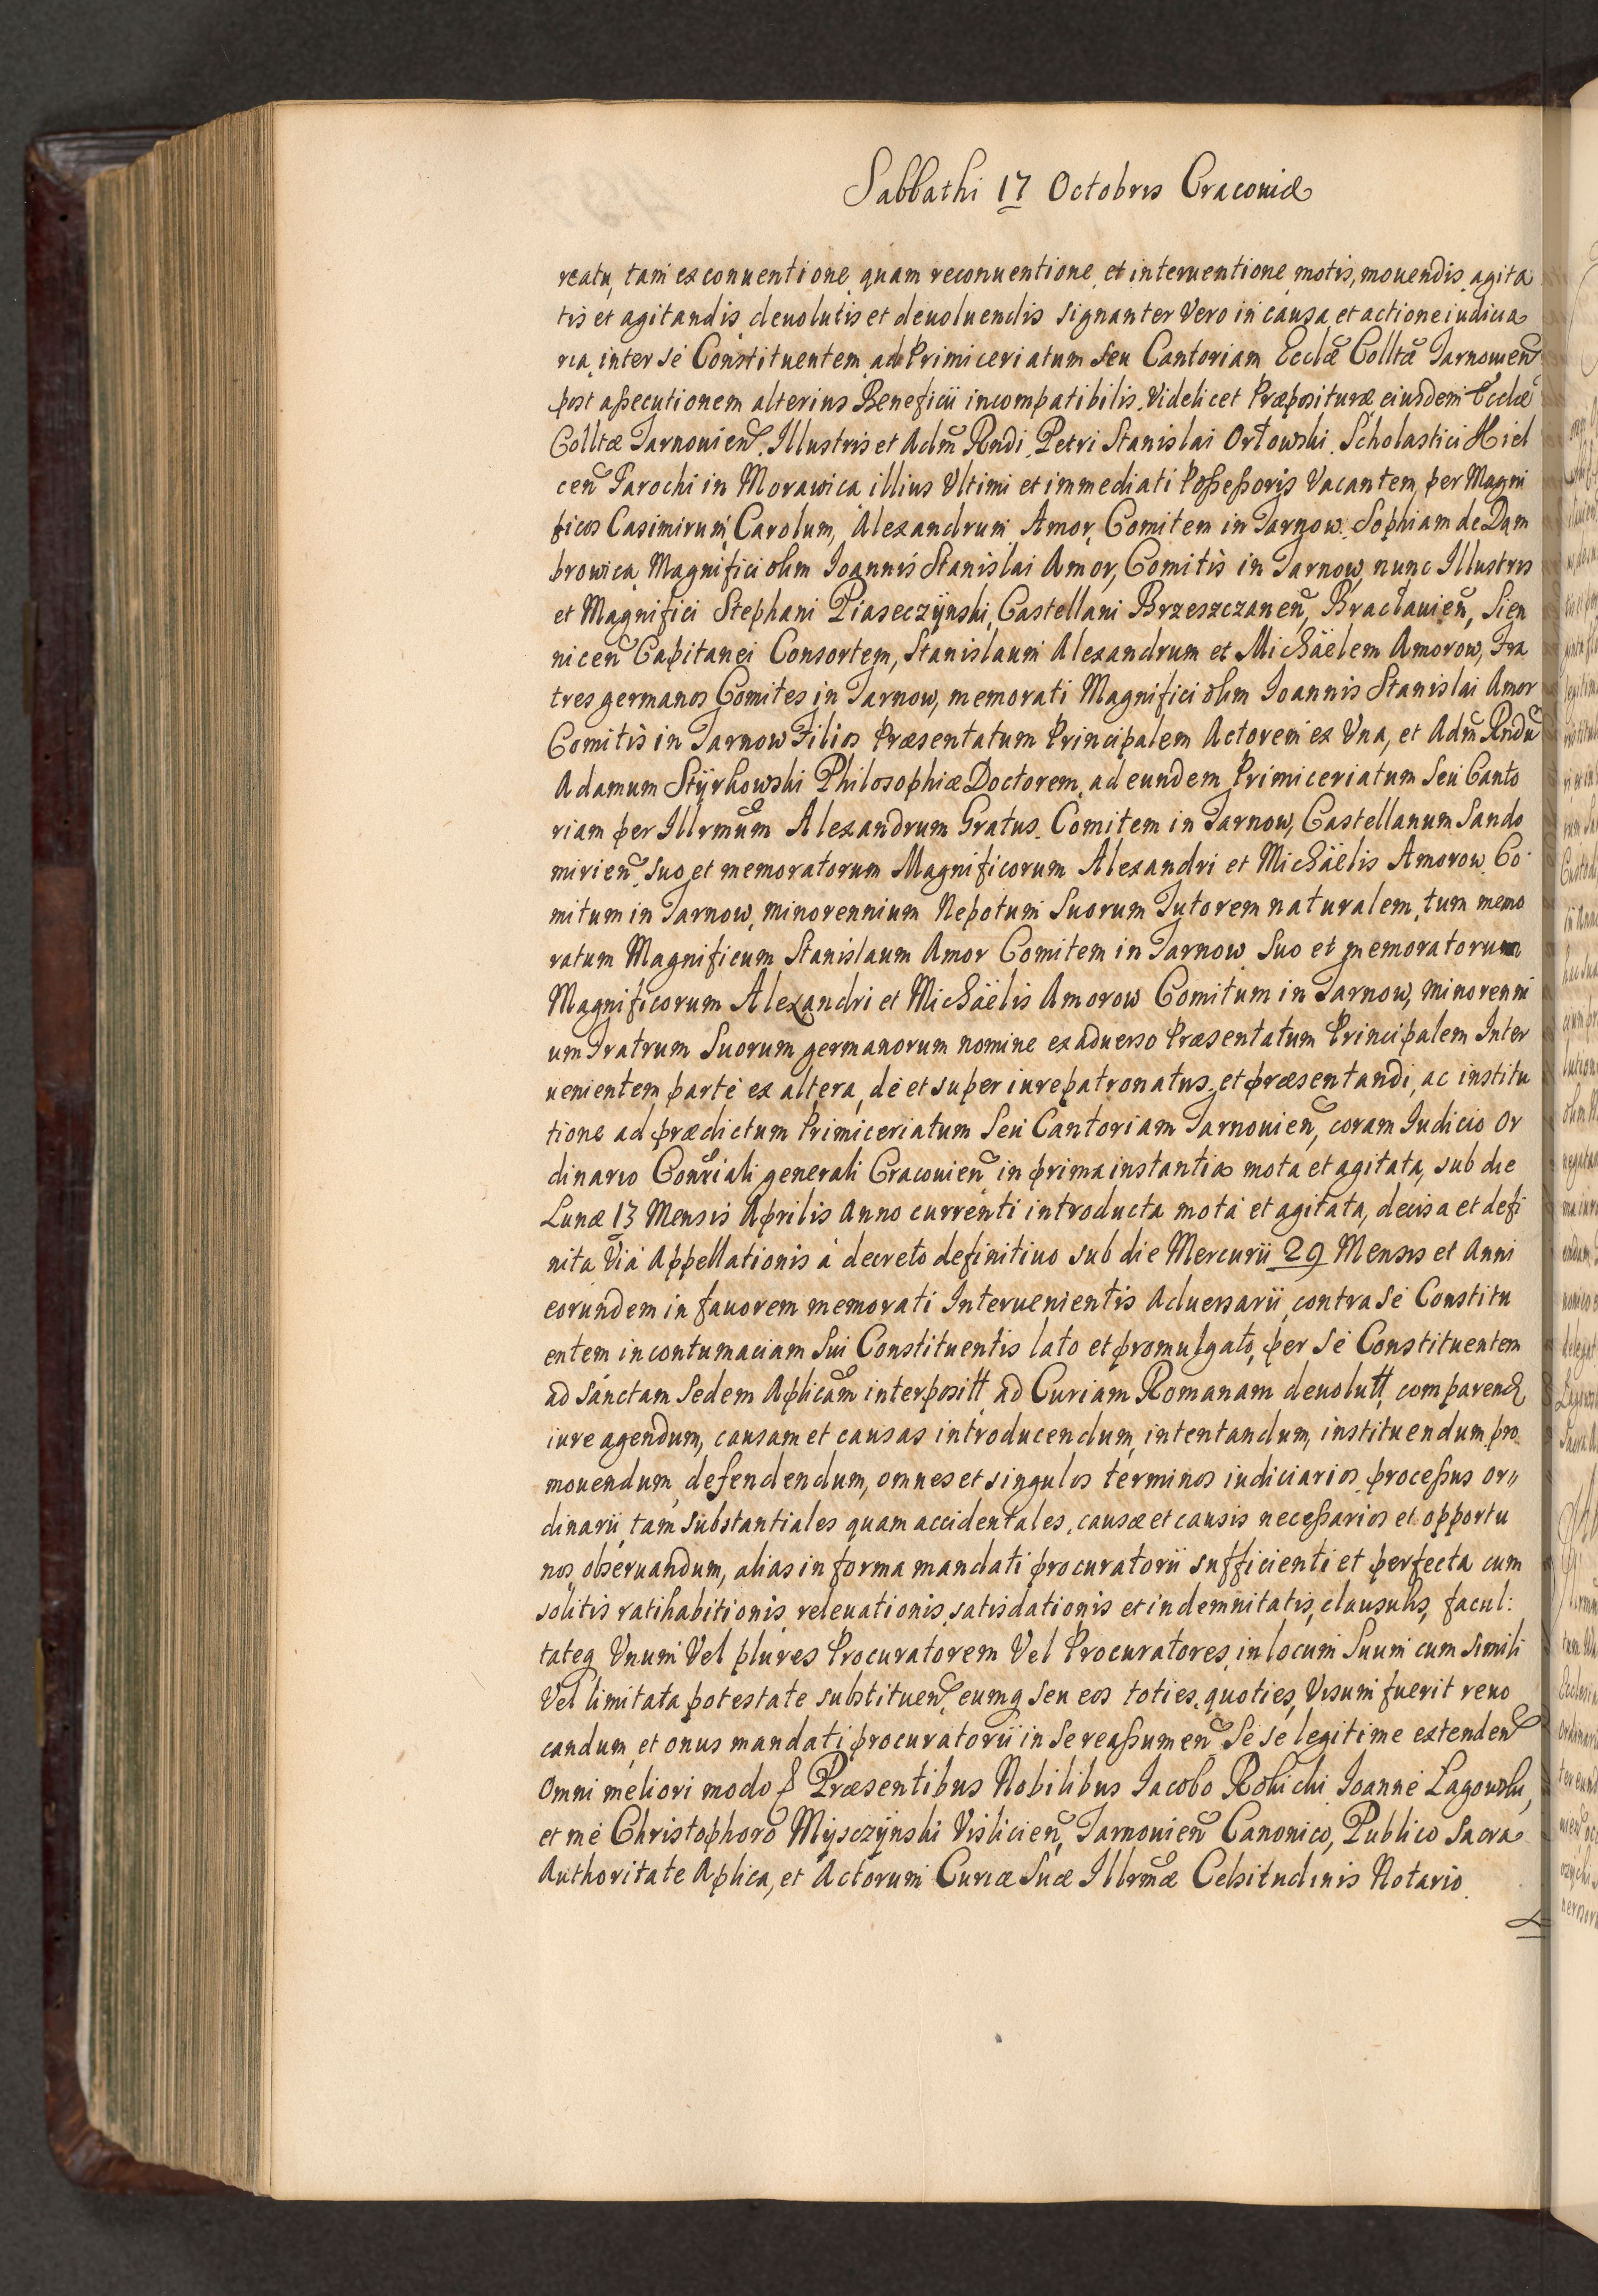 Sabbathi 17 Octobris Cracouiæ
reatu, tam ex conuentione, quam reconuentione, et interuentione motis, mouendis, agita
tis et agitandis, deuolutis et deuoluendis signanter Vero in causa, et actione iudicia
ria, inter se Constituentem, ad Primiceriatum seu Cantoriam Ecclæ Colltæ Tarnouien
post aßecutionem alterius Beneficii incompatibilis. Videlicet Præposituræ eiusdem Ecclæ
Colltæ Tarnouien. Illustris et Adm Rndi Petri Stanislai Orłowski Scholastici Kiel
cen Parochi in Morawica illius Vltimi et immediati Poßeßoris Vacantem, per Magni
ficos Casimirum, Carolum, Alexandrum Amor, Comitem in Tarnow. Sophiam de Dąm
browica Magnifici olim Ioannis Stanislai Amor, Comitis in Tarnow, nunc Illustris
et Magnifici Stephani Piaseczÿnski, Castellani Brzeszczanen, Bracłauien, Sien
nicen Capitanei Consortem, Stanislaum Alexandrum et Michäelem Amorow, Fra
tres germanos Comites in Tarnow, memorati Magnifici olim Ioannis Stanislai Amor
Comitis in Tarnow Filios Præsentatum Principalem Actorem ex Vna, et Adm Rndu
Adamum Stÿrkowski Philosophiæ Doctorem, ad eundem Primiceriatum seu Canto
riam per Illrmum Alexandrum Gratus. Comitem in Tarnow, Castellanum Sando
mirien, suo et memoratorum Magnificorum Alexandri et Michäelis Amorow Co
mitum in Tarnow, minorennium Nepotum Suorum Tutorem naturalem, tum memo
ratum Magnificum Stanislaum Amor Comitem in Tarnow Suo et memoratorum
Magnificorum Alexandri et Michäelis Amorow Comitum in Tarnow, minorenni
um Fratrum Suorum germanorum nomine ex aduerso Præsentatum Principalem Inter
uenientem parte ex altera, de et super iurepatronatus, et præsentandi, ac institu
tione ad prædictum Primiceriatum Seu Cantoriam Tarnouien, coram Iudicio Or
dinario Conriali generali Cracouien in prima instantia mota et agitata, sub die
Lunæ 13 Mensis Aprilis Anno currenti introducta mota et agitata, decisa et defi
nita Via Appellationis à decreto definitiuo sub die Mercurii 29 Mensis et Anni
eorundem in fauorem memorati Interuenientis Aduersarii, contra se Constitu
entem in contumaciam Sui Constituentis lato et promulgato, per se Constituentem
ad Sanctam Sedem Aplicam interpositt, ad Curiam Romanam deuolutt, comparend
iure agendum, causam et causas introducendum, intentandum, instituendum pro
mouendum, defendendum, omnes et singulos terminos iudiciarios, proceßus or
dinarii, tam substantiales quam accidentales, causæ et causis neceßarios et opportu
nos, obseruandum, alias in forma mandati procuratorii sufficienti et perfecta cum
solitis ratihabitionis, releuationis, satisdationis et indemnitatis, clausulis, facul:
tateq Vnum Vel plures Procuratorem Vel Procuratores, in locum Suum cum simili
Vel limitata potestate substituen, eumq seu eos toties, quoties, Visum fuerit reuo
candum, et onus mandati procuratorii in se reaßumen Se se legitime extenden
Omni meliori modo & Præsentibus Nobilibus Iacobo Rokicki Ioanne Łagowski,
et me Christophoro Mÿsczÿnski Vislicien, Tarnouien Canonico, Publico Sacra
Authoritate Aplica, et Actorum Curiæ Suæ Illrmæ Celsitudinis Notario.